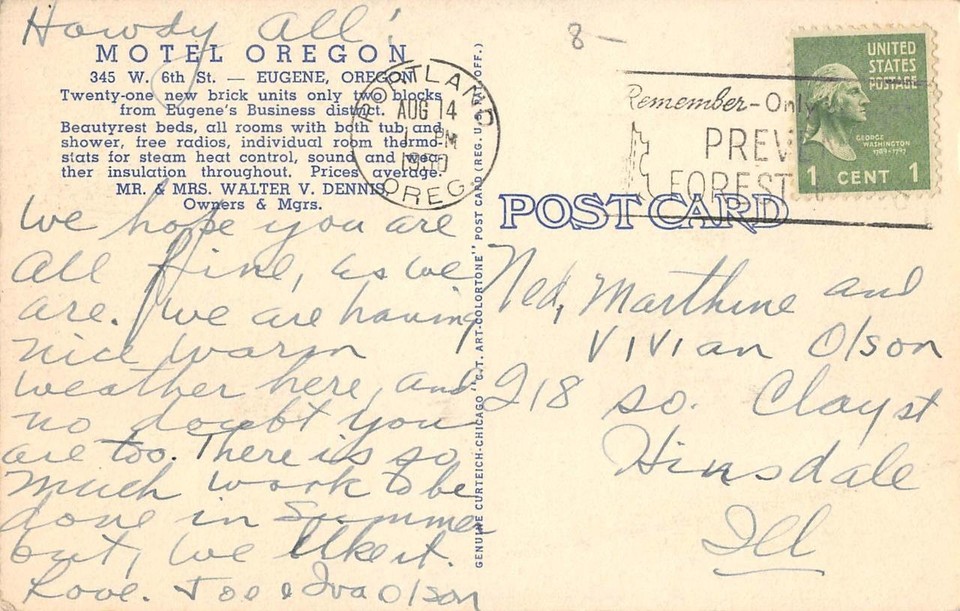 Howdy All!
MOTEL OREGON
345 W. 6th St. — EUGENE, OREGON
Twenty-one new brick units only two blocks
from Eugene's Business district.
Beautyrest beds, all rooms with both tub and
shower, free radios, individual room thermo-
stats for steam heat control, sound and wea-
ther insulation throughout. Prices average.
MR. & MRS. WALTER V. DENNIS,
Owners & Mgrs.
We hope you are
all fine, as we
are. We are having
nice warm
weather here, and
no doubt you
are too. There is so
much work to be
done in summer
but, we like it.
Love. Joe & Iva Olson
GENUINE CURTEICH-CHICAGO "C.T. ART-COLORTONE" POST CARD (REG. U.S. PAT. OFF.)
PORTLAND
AUG 14
PM
OREG.
8-
Remember-Only
PREVE
FOREST
UNITED
STATES
POSTAGE
GEORGE
WASHINGTON
1789-1797
1 CENT 1
POST CARD
Ned, Marthine and
Vivian Olson
218 So. Clay st
Hinsdale
Ill